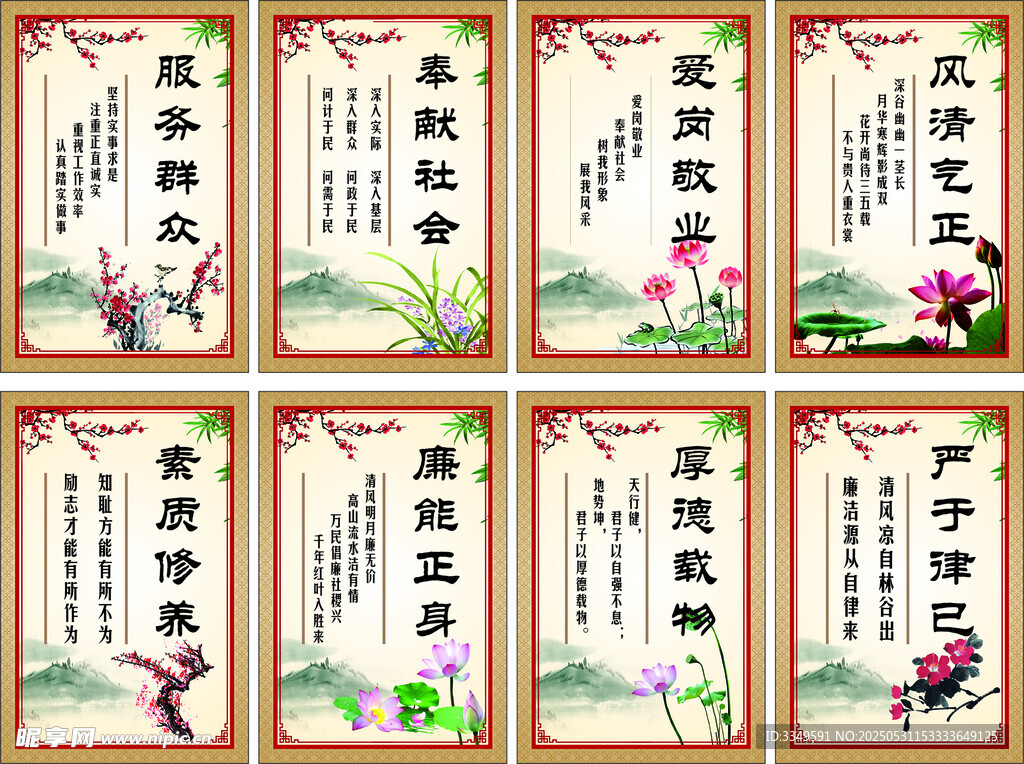 服务群众
坚持实事求是
注重正直诚实
重视工作效率
认真踏实做事
奉献社会
深入实际 深入基层
深入群众 问政于民
问计于民 问需于民
爱岗敬业
爱岗敬业
奉献社会
树我形象
展我风采
风清气正
深谷幽幽一茎长
月华寒辉影成双
花开尚待三五载
不与贵人重衣裳
素质修养
知耻方能有所不为
励志才能有所作为
廉能正身
清风明月廉无价
高山流水洁有情
万民倡廉社稷兴
千年红叶入胜来
厚德载物
天行健，
君子以自强不息；
地势坤，
君子以厚德载物。
严于律己
清风凉自林谷出
廉洁源从自律来
昵享网 www.nipic.cn
ID:3349591 NO:20250531153333649125